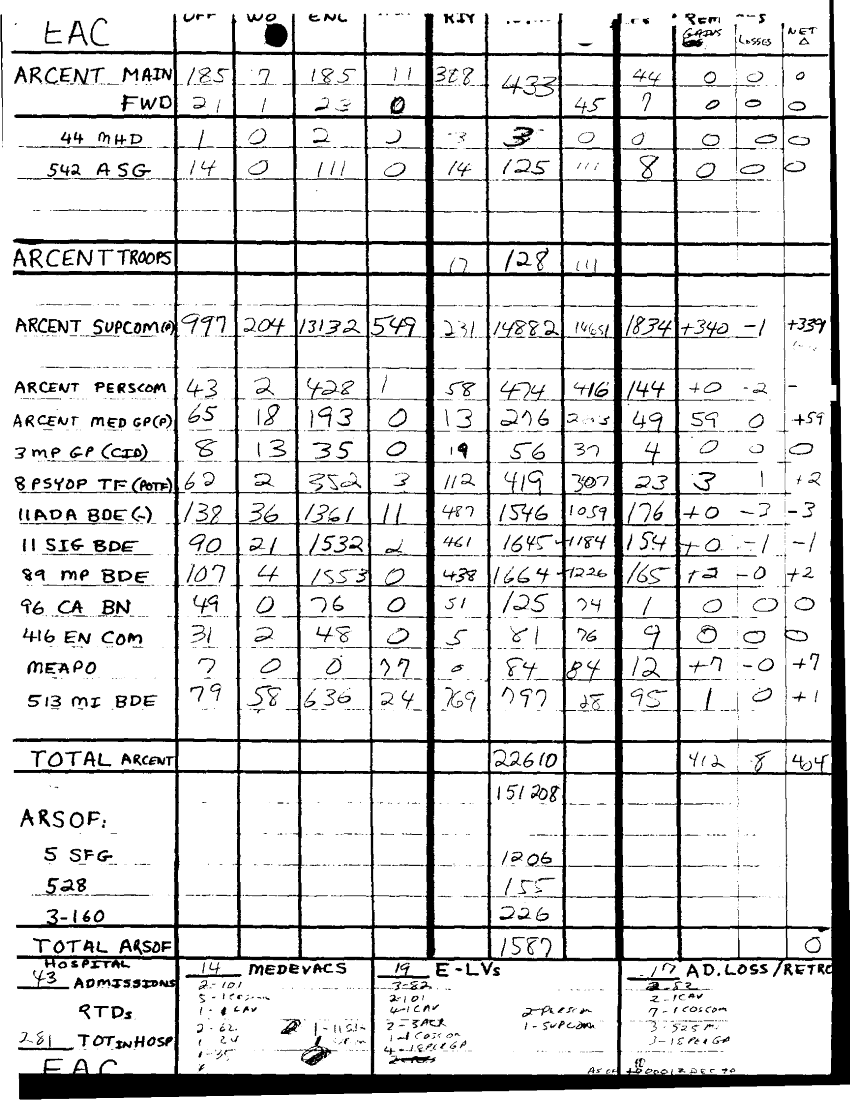 EAC OFF WO ENL RIY REM GAINS LOSSES NET Δ
ARCENT MAIN 185 7 185 11 388 433 44 0 0 0
FWD 21 1 23 0 45 7 0 0 0
44 MHD 1 0 2 3 3 0 0 0 0 0
542 ASG 14 0 111 0 14 125 111 8 0 0 0
ARCENT TROOPS 17 128 111
ARCENT SUPCOM(P) 997 204 13132 549 231 14882 14651 1834 +340 -1 +339
ARCENT PERSCOM 43 2 428 1 58 474 416 144 +0 -2 -
ARCENT MED GP(P) 65 18 193 0 13 276 49 59 0 +59
3 MP GP (CID) 8 13 35 0 19 56 37 4 0 0 0
8 PSYOP TF (POTF) 62 2 352 3 112 419 307 23 3 1 +2
11 ADA BDE (-) 138 36 1361 11 487 1546 1059 176 +0 -3 -3
11 SIG BDE 90 21 1532 2 461 1645 -1184 154 +0 -1 -1
89 MP BDE 107 4 1553 0 438 1664 -1226 165 +2 -0 +2
96 CA BN 49 0 76 0 51 125 74 1 0 0 0
416 EN COM 31 2 48 0 5 81 76 9 0 0 0
MEAPO 7 0 0 77 0 84 84 12 +7 -0 +7
513 MI BDE 79 58 636 24 769 797 28 95 1 0 +1
TOTAL ARCENT 22610 412 8 404
151208
ARSOF:
5 SFG 1206
528 155
3-160 226
TOTAL ARSOF 1587 0
HOSPITAL
43 ADMISSIONS
RTDs
281 TOT IN HOSP
EAC
14 MEDEVACS
2-101
5-1COSCOM
1-1 CAV
2-62
1-24
1-35
1-11SIG
19 E-LVs
3-82
2-101
4-1CAV
2-3ACR
1-1COSCOM
4-18PERGP
2-PERSCOM
1-SUPCOM
17 AD.LOSS/RETRO
2-82
2-1CAV
7-1COSCOM
3-525 MI
3-18PERGP
AS OF 0001 2 DEC 90